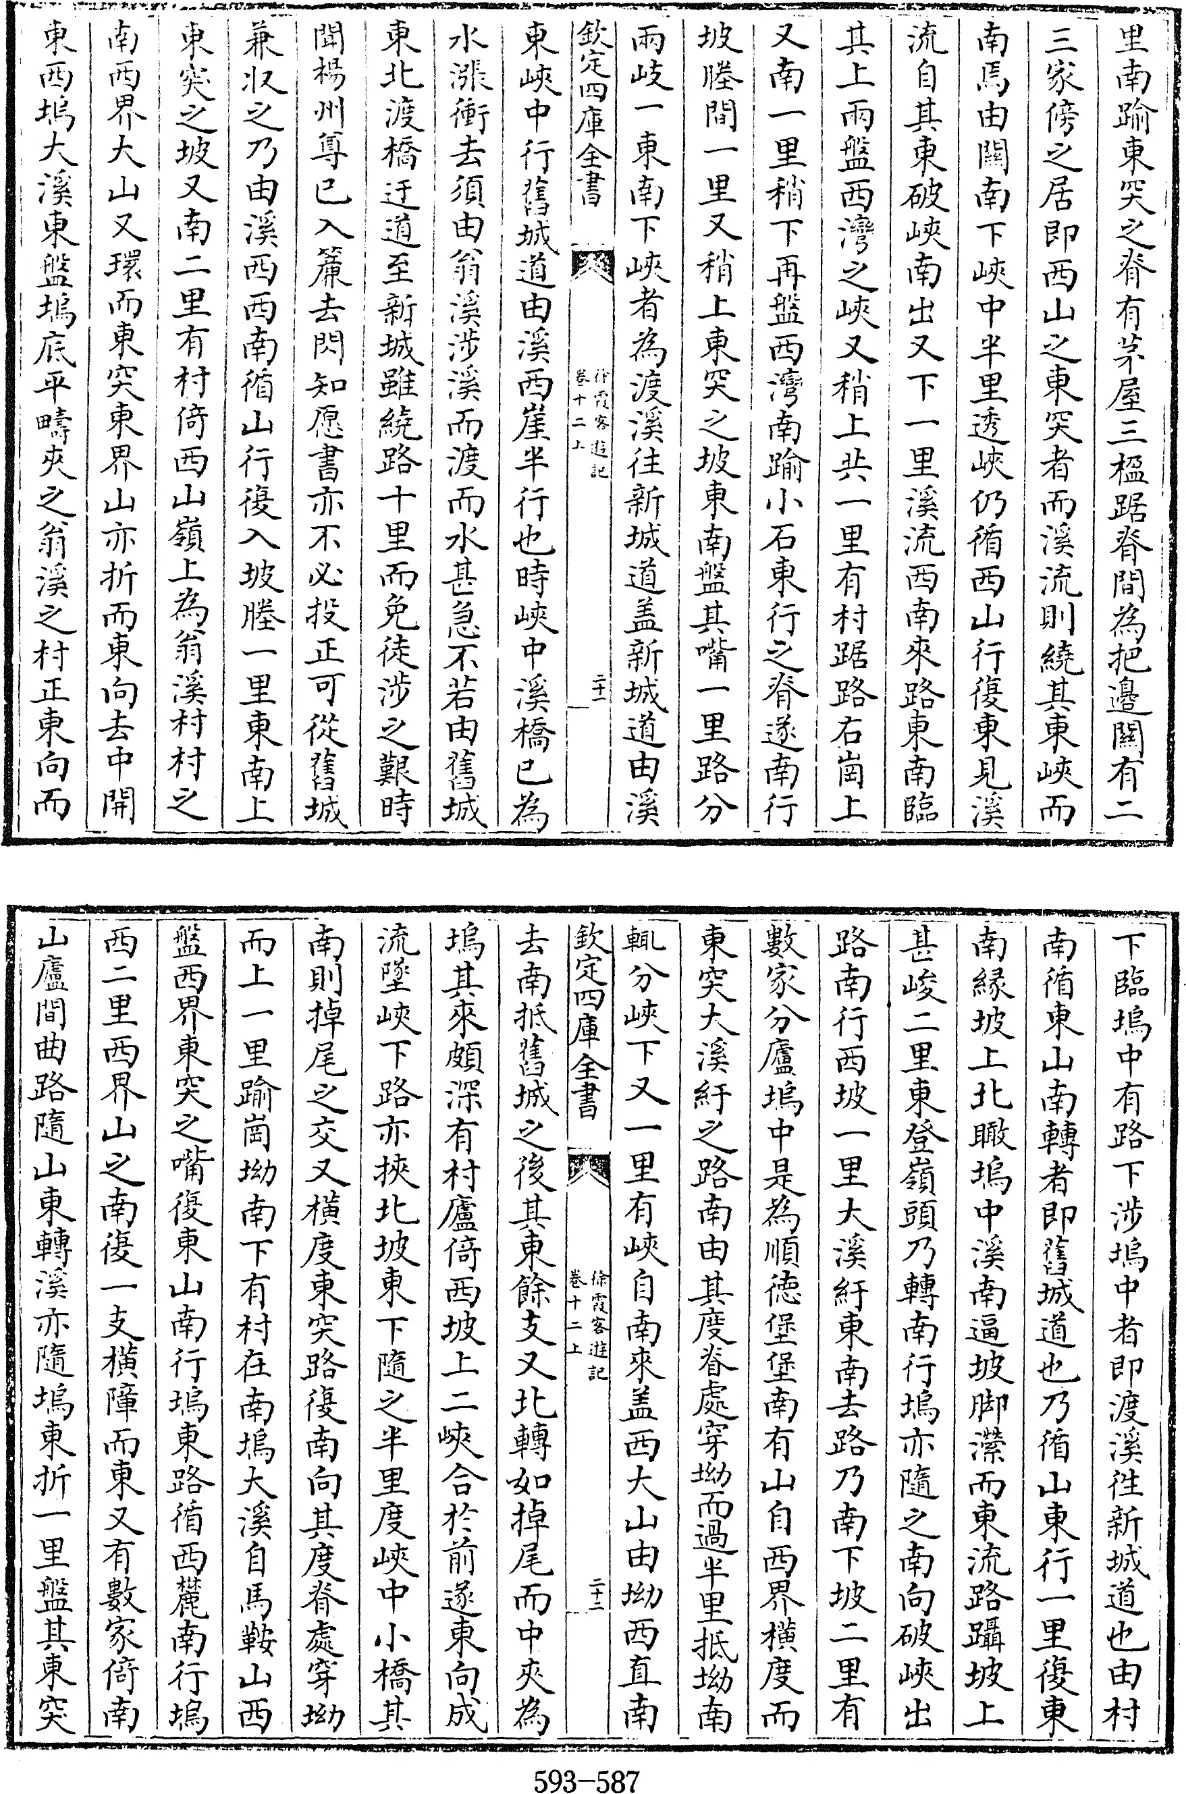 里南踰東突之脊有茅屋三楹踞脊間為把邊關有二
三家傍之居即西山之東突者而溪流則繞其東峽而
南焉由關南下峽中半里透峽仍循西山行復東見溪
流自其東破峽南出又下一里溪流西南來路東南臨
其上兩盤西灣之峽又稍上共一里有村踞路右崗上
又南一里稍下再盤西灣南踰小石東行之脊遂南行
坡塍間一里又稍上東突之坡東南盤其嘴一里路分
兩岐一東南下峽者為渡溪往新城道盖新城道由溪
欽定四庫全書
徐霞客遊記
卷十二上
二十一
東峽中行舊城道由溪西崖半行也時峽中溪橋已為
水漲衝去須由翁溪涉溪而渡而水甚急不若由舊城
東北渡橋迂道至新城雖繞路十里而免徒涉之艱時
聞楊州尊已入簾去閃知愿書亦不必投正可從舊城
兼収之乃由溪西西南循山行復入坡塍一里東南上
東突之坡又南二里有村倚西山嶺上為翁溪村村之
南西界大山又環而東突東界山亦折而東向去中開
東西塢大溪東盤塢底平疇夾之翁溪之村正東向而
下臨塢中有路下涉塢中者即渡溪徃新城道也由村
南循東山南轉者即舊城道也乃循山東行一里復東
南緣坡上北瞰塢中溪南逼坡脚瀠而東流路躡坡上
甚峻二里東登嶺頭乃轉南行塢亦隨之南向破峽出
路南行西坡一里大溪紆東南去路乃南下坡二里有
數家分廬塢中是為順德堡堡南有山自西界橫度而
東突大溪紆之路南由其度脊處穿坳而過半里抵坳南
輒分峽下又一里有峽自南來盖西大山由坳西直南
欽定四庫全書
徐霞客遊記
卷十二上
二十二
去南抵舊城之後其東餘支又北轉如掉尾而中夾為
塢其來頗深有村廬倚西坡上二峽合於前遂東向成
流墜峽下路亦挾北坡東下隨之半里度峽中小橋其
南則掉尾之交又橫度東突路復南向其度脊處穿坳
而上一里踰崗坳南下有村在南塢大溪自馬鞍山西
盤西界東突之嘴復東山南行塢東路循西麓南行塢
西二里西界山之南復一支橫障而東又有數家倚南
山廬間曲路隨山東轉溪亦隨塢東折一里盤其東突
593-587